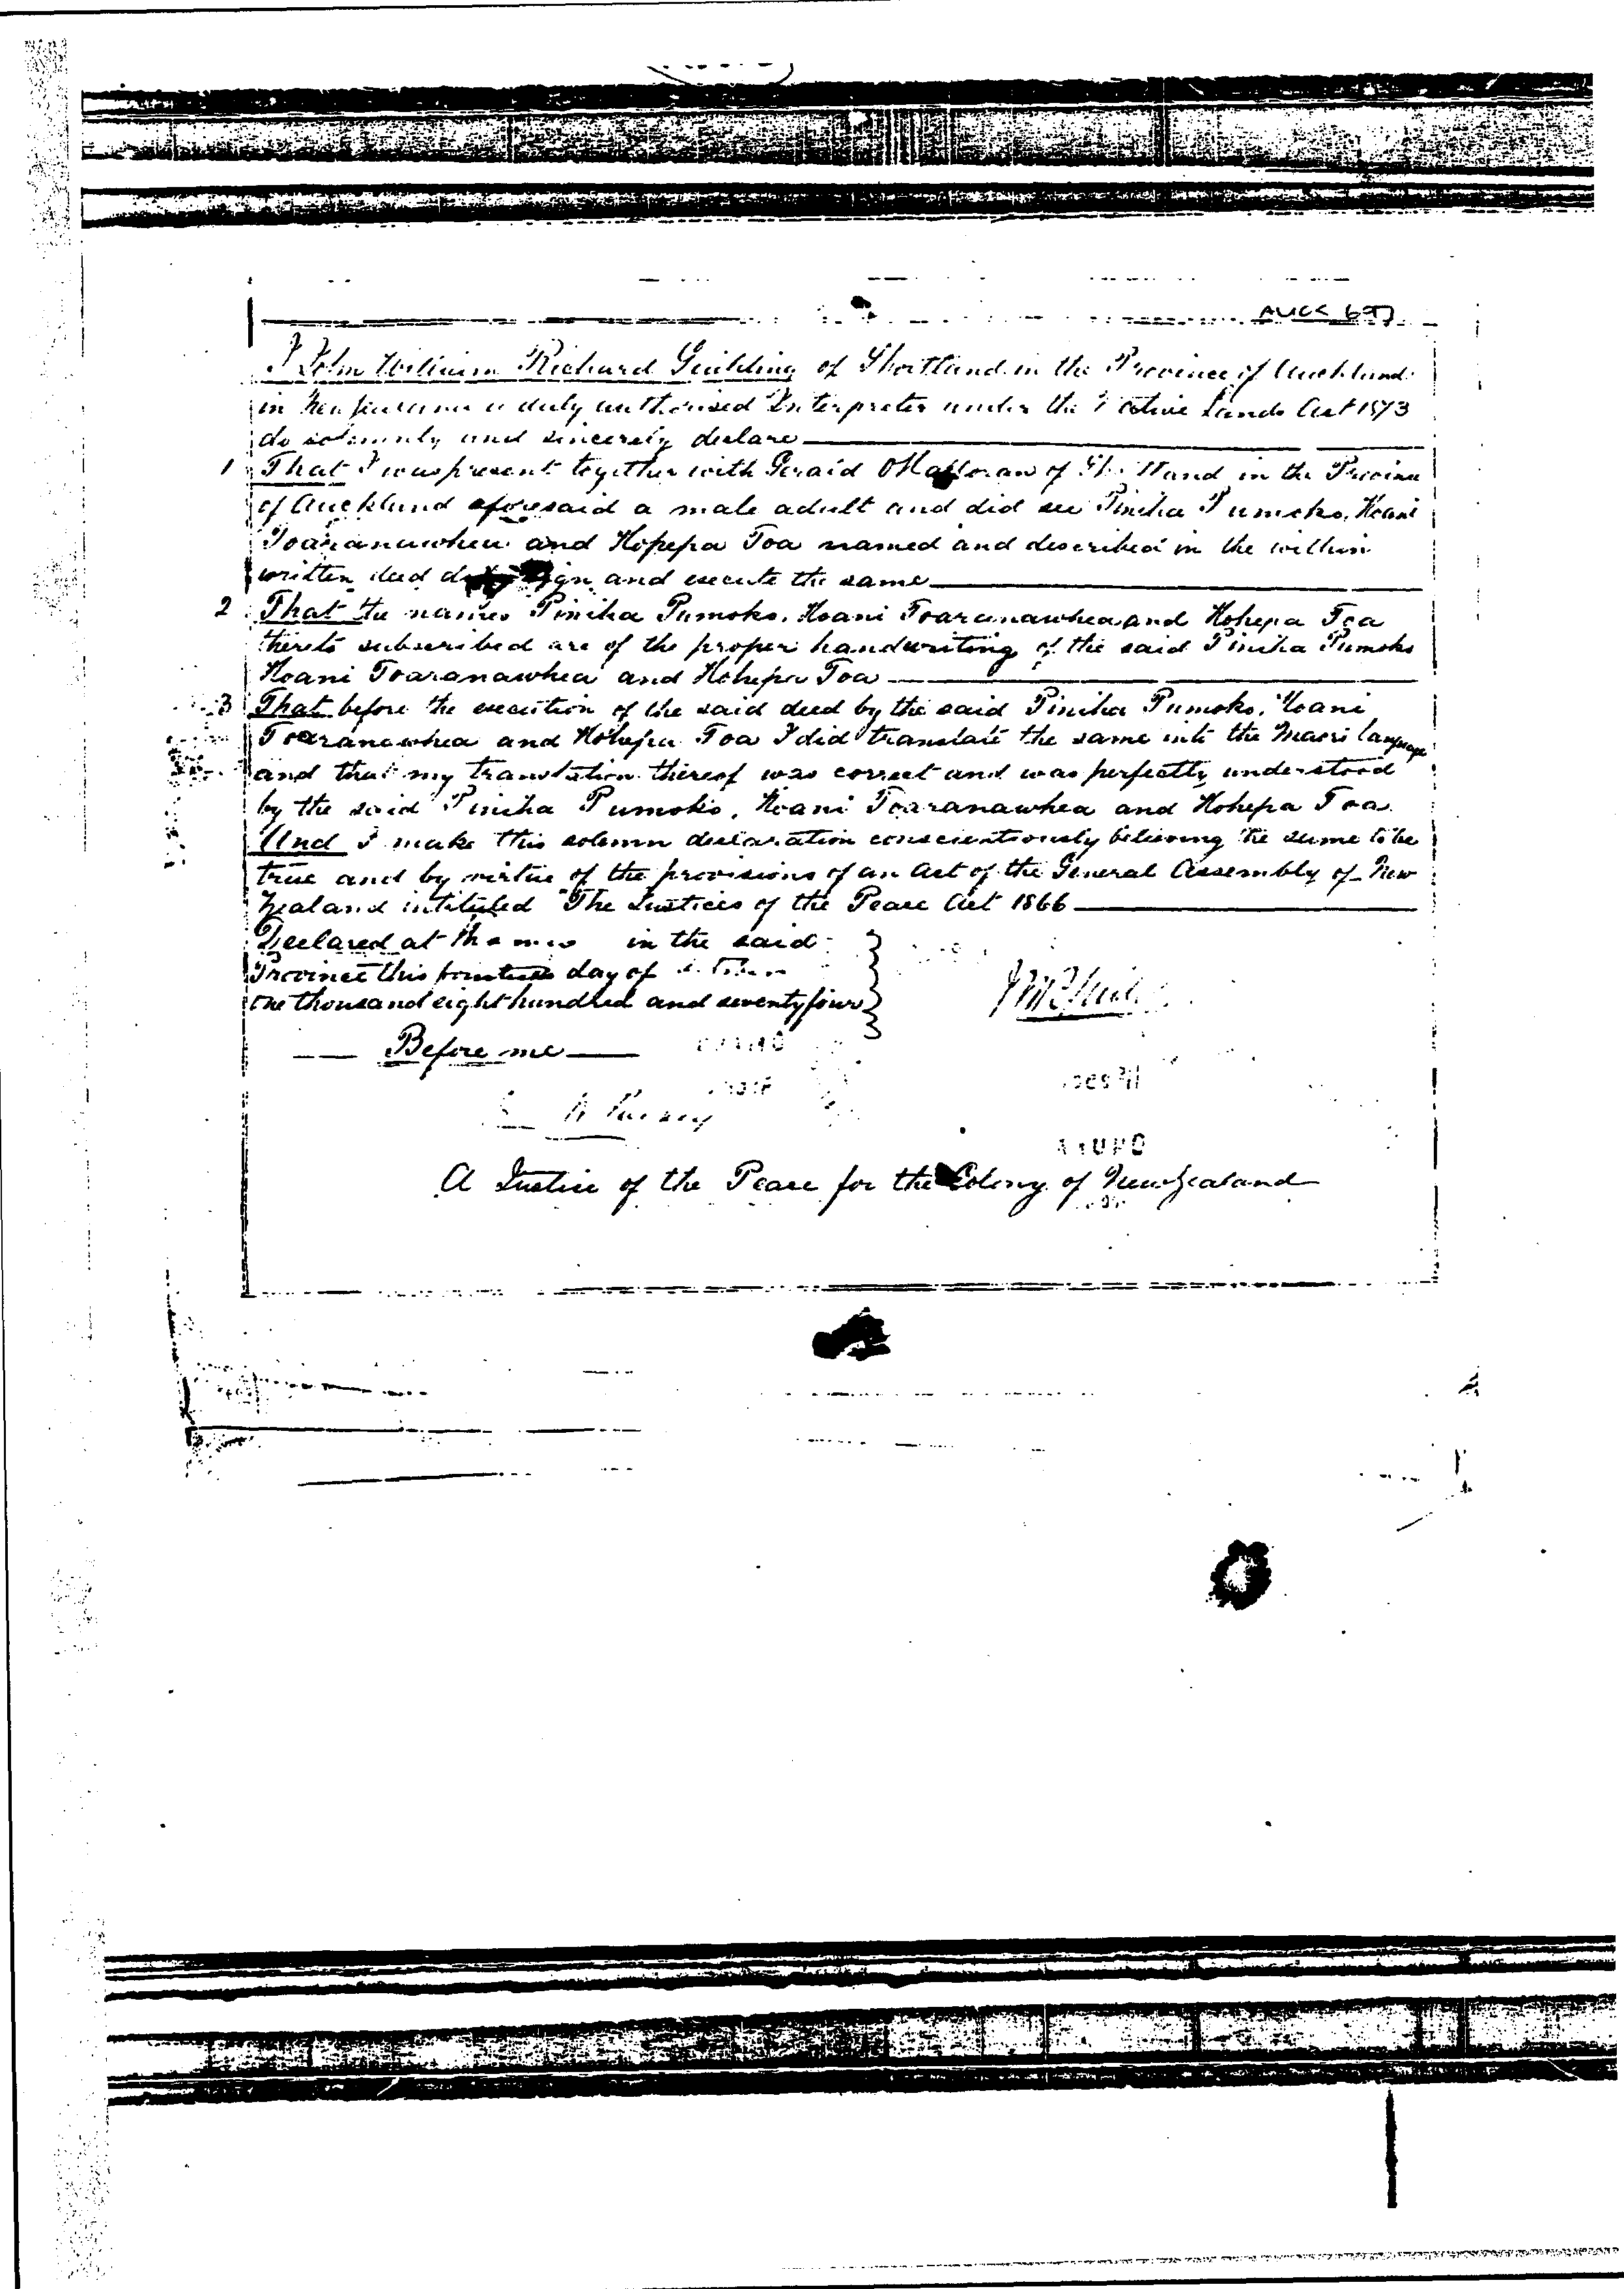 AUCK 697
I John William Richard Guilding of Shortland in the Province of Auckland
in New Zealand a duly authorised Interpreter under the Native Lands Act 1873
do solemnly and sincerely declare
1 That I was present together with Gerald OHalloran of Shortland in the Province
of Auckland aforesaid a male adult and did see Piniha Pumoko, Hoani
Toaranawhea and Hohepa Toa named and described in the within
written deed duly sign and execute the same
2 That the names Piniha Pumoko, Hoani Toaranawhea and Hohepa Toa
thereto subscribed are of the proper handwriting of the said Piniha Pumoko
Hoani Toaranawhea and Hohepa Toa
3 That before the execution of the said deed by the said Piniha Pumoko, Hoani
Toaranawhea and Hohepa Toa I did translate the same into the Maori language
and that my translation thereof was correct and was perfectly understood
by the said Piniha Pumoko, Hoani Toaranawhea and Hohepa Toa
And I make this solemn declaration conscientiously believing the same to be
true and by virtue of the provisions of an Act of the General Assembly of New
Zealand intituled "The Justices of the Peace Act 1866
Declared at Thames in the said
Province this fourteenth day of
one thousand eight hundred and seventy four
Before me
A Justice of the Peace for the Colony of New Zealand